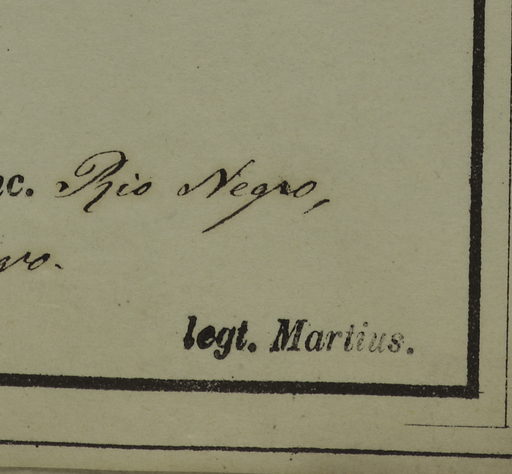 c. Rio Negro,
gro.
legt. Martius.